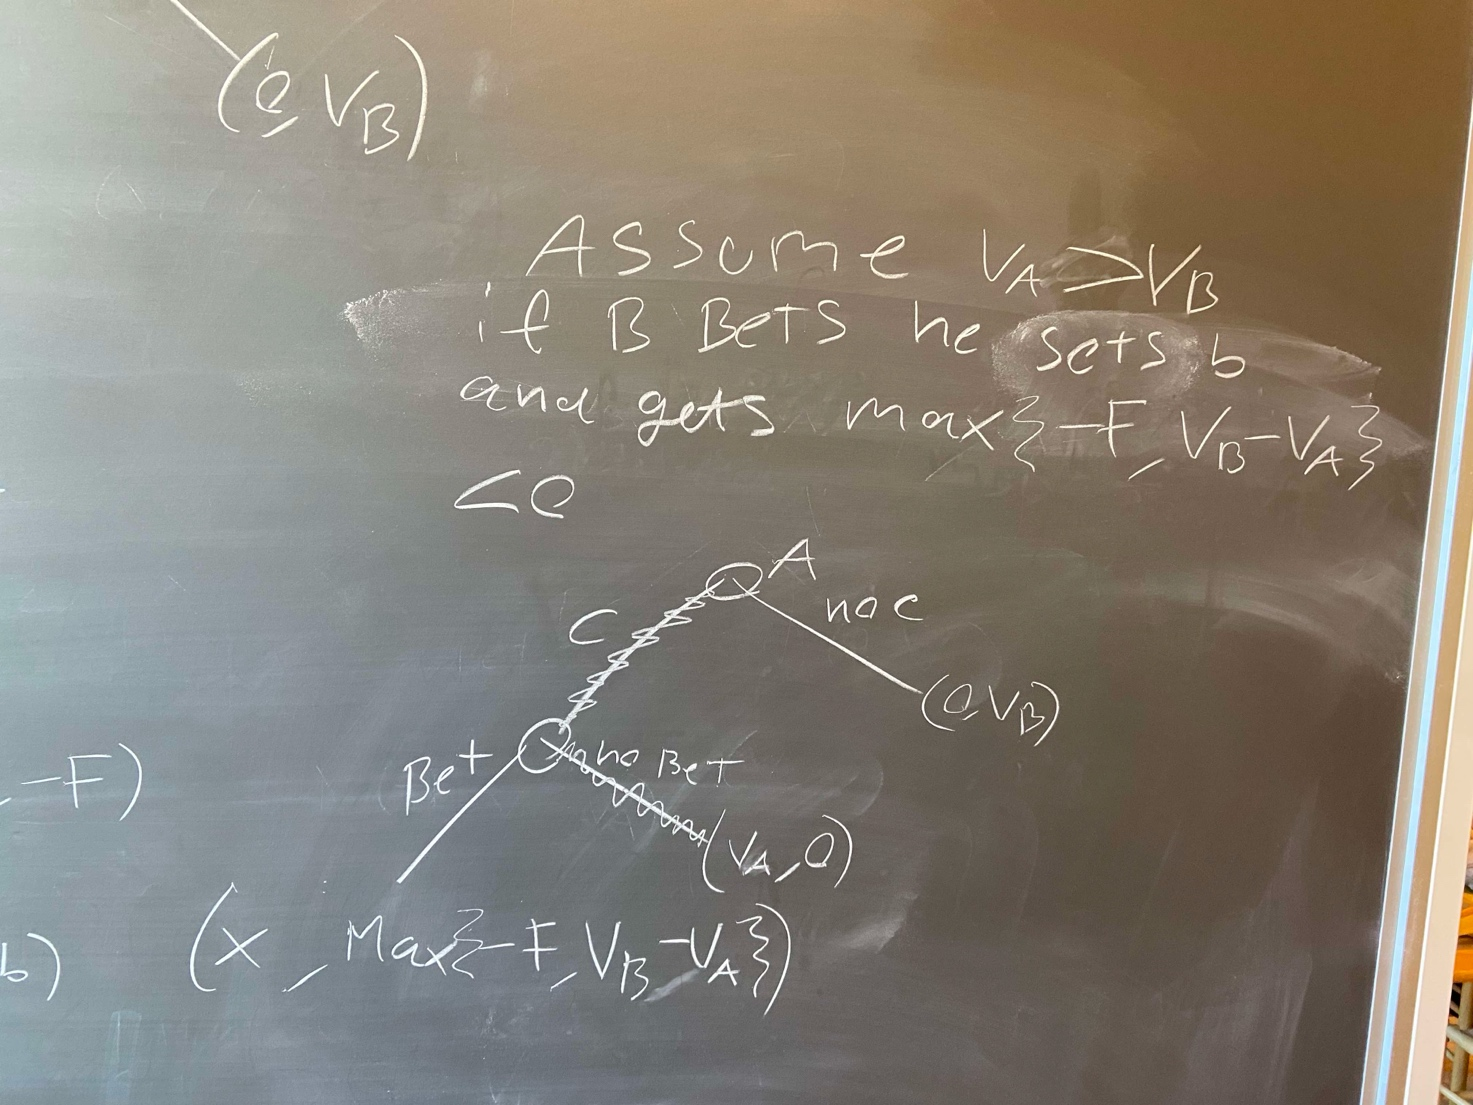 (0, V_B)
Assume V_A > V_B
if B Bets he sets b
and gets max{-F, V_B-V_A}
<0
A
C
no c
(0, V_B)
Bet
no Bet
, -F)
(V_A, 0)
b)
(x, Max{-F, V_B-V_A})